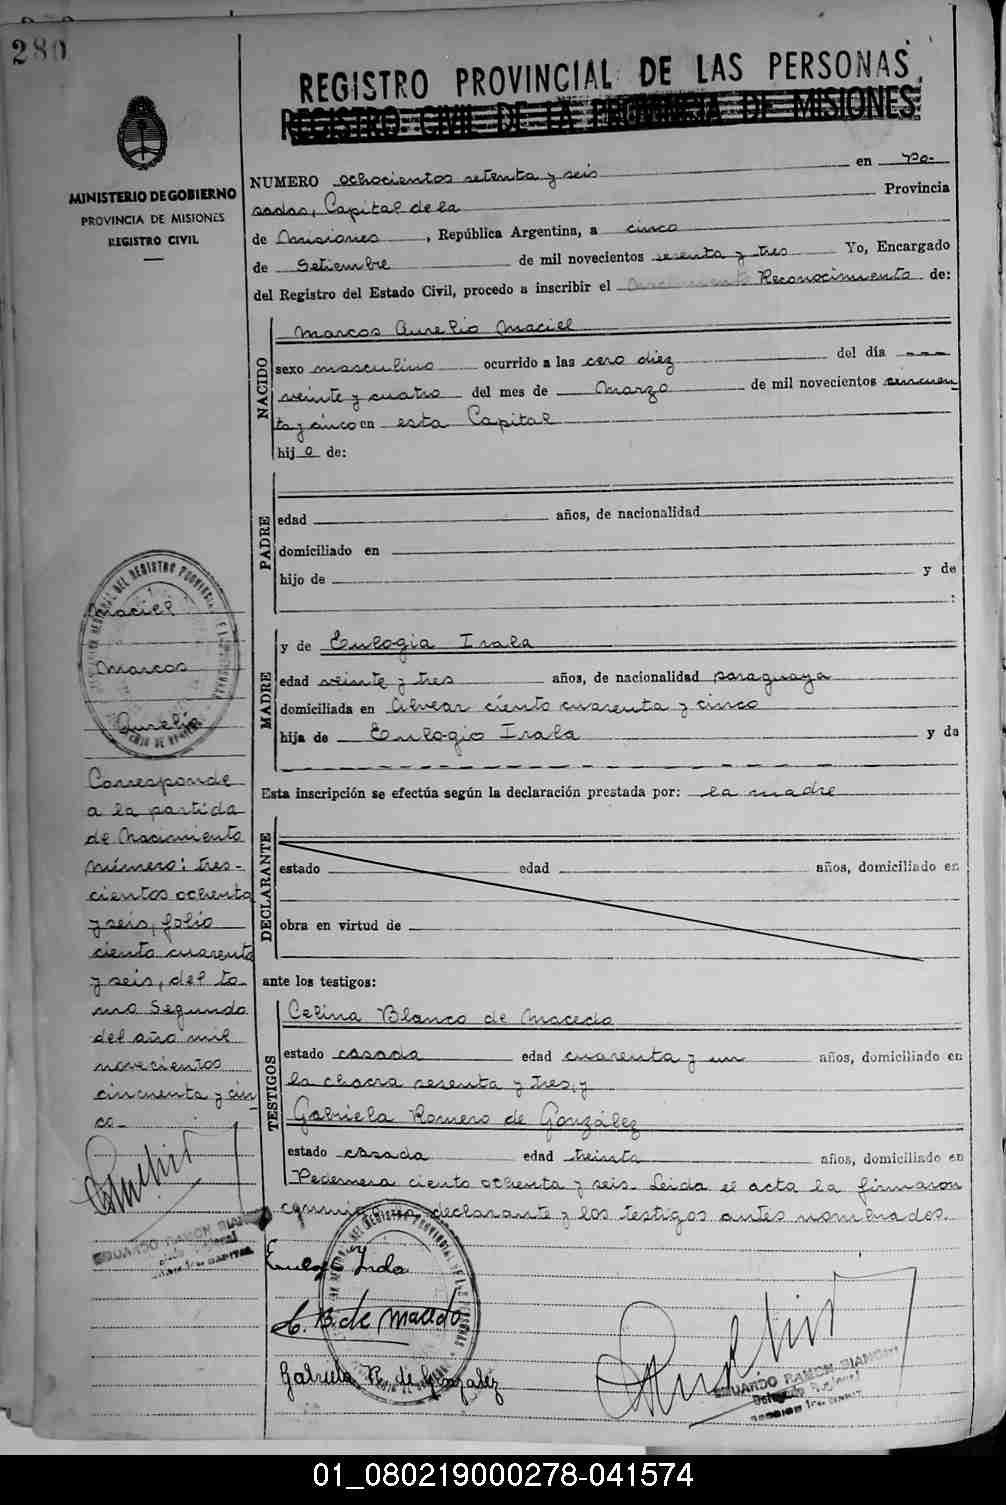 280
REGISTRO PROVINCIAL DE LAS PERSONAS
REGISTRO CIVIL DE LA PROVINCIA DE MISIONES
MINISTERIO DE GOBIERNO
PROVINCIA DE MISIONES
REGISTRO CIVIL
NUMERO ochocientos setenta y seis en Po-
sadas, Capital de la Provincia
de Misiones, República Argentina, a cinco
de Setiembre de mil novecientos sesenta y tres Yo, Encargado
del Registro del Estado Civil, procedo a inscribir el Reconocimiento de:
NACIDO
Marcos Aurelio Maciel
sexo masculino ocurrido a las cero diez del día ---
veinte y cuatro del mes de Marzo de mil novecientos cincuen
ta y cinco en esta Capital
hijo de:
PADRE
edad años, de nacionalidad
domiciliado en
hijo de y de
:
MADRE
y de Eulogia Irala
edad veinte y tres años, de nacionalidad paraguaya
domiciliada en Alvear ciento cuarenta y cinco
hija de Eulogio Irala y da
Esta inscripción se efectúa según la declaración prestada por: la madre
DECLARANTE
estado edad años, domiciliado en
obra en virtud de
ante los testigos:
TESTIGOS
Celina Blanco de Macedo
estado casada edad cuarenta y un años, domiciliado en
la chacra sesenta y tres, y
Gabriela Romero de González
estado casada edad treinta años, domiciliado en
Pedernera ciento ochenta y seis. Leida el acta la firmaron
conmigo declarante y los testigos antes nombrados.
Maciel
Marcos
Aurelio
Corresponde
a la partida
de Nacimiento
número: tres-
cientos ochenta
y seis, folio
ciento cuarenta
y seis, del to-
mo Segundo
del año mil
novecientos
cincuenta y cin
co-
EDUARDO RAMON BIANCHI
Irala
C. B. de Macedo
Gabriela R. de González
EDUARDO RAMON BIANCHI
Delegado Regional
01_080219000278-041574